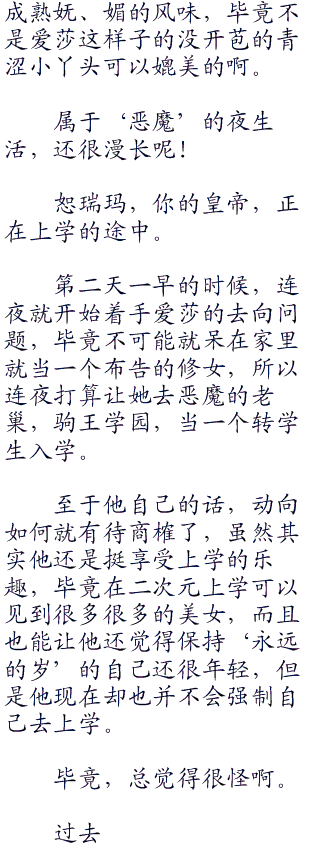 成熟妩、媚的风味，毕竟不
是爱莎这样子的没开苞的青
涩小丫头可以媲美的啊。
属于‘恶魔’的夜生
活，还很漫长呢！
恕瑞玛，你的皇帝，正
在上学的途中。
第二天一早的时候，连
夜就开始着手爱莎的去向问
题，毕竟不可能就呆在家里
就当一个布告的修女，所以
连夜打算让她去恶魔的老
巢，驹王学园，当一个转学
生入学。
至于他自己的话，动向
如何就有待商榷了，虽然其
实他还是挺享受上学的乐
趣，毕竟在二次元上学可以
见到很多很多的美女，而且
也能让他还觉得保持‘永远
的岁’的自己还很年轻，但
是他现在却也并不会强制自
己去上学。
毕竟，总觉得很怪啊。
过去